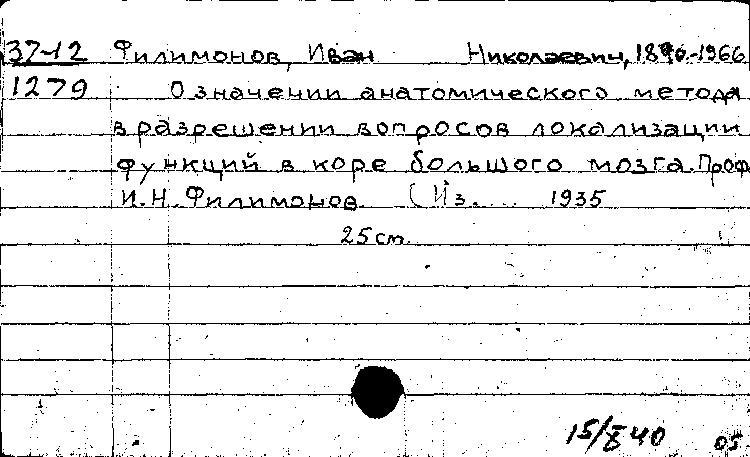 37-12 Филимонов, Иван Николаевич, 1890-1966
1279 О значении анатомического метода
в разрешении вопросов локализации
функций в коре большого мозга. Проф.
И.Н. Филимонов. (Из.... 1935
25 cm.
15/X 40 05